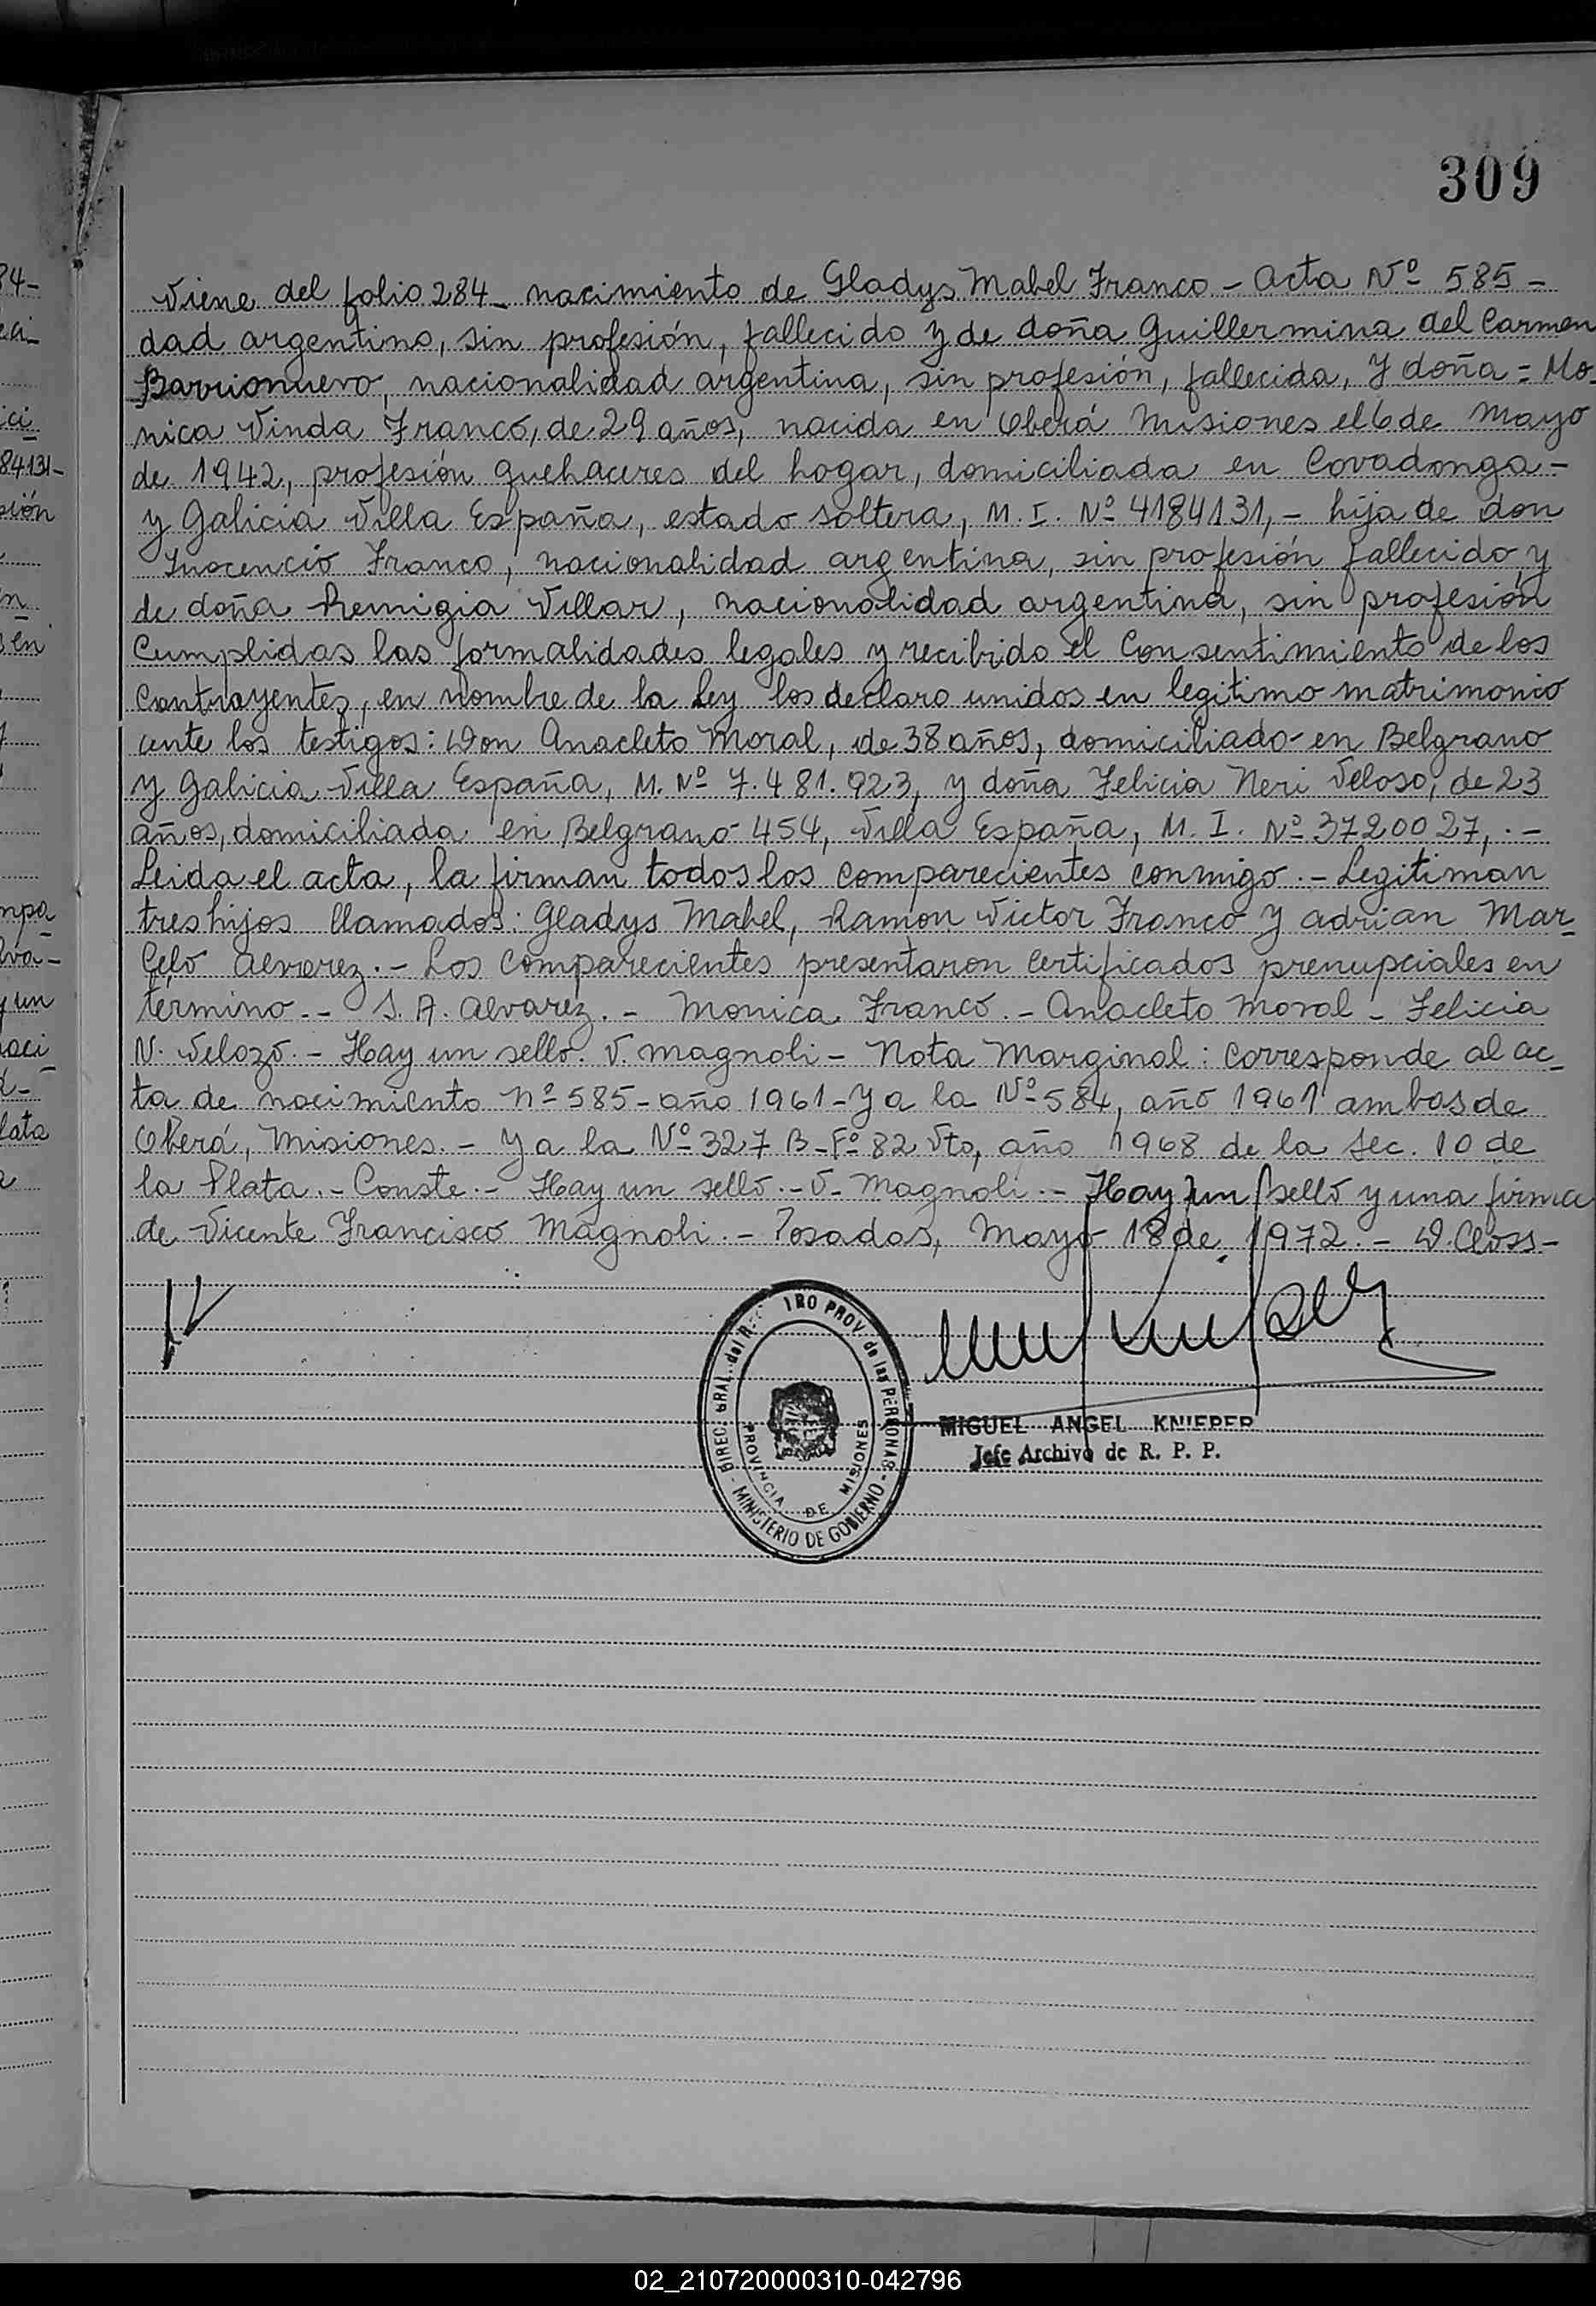 309
Viene del folio 284 - nacimiento de Gladys Mabel Franco - Acta Nº 585 -
dad argentino, sin profesión, fallecido y de doña Guillermina del Carmen
Barrionuevo, nacionalidad argentina, sin profesión, fallecida, y doña = Mo
nica Vinda Franco, de 29 años, nacida en Oberá Misiones el 6 de Mayo
de 1942, profesión quehaceres del hogar, domiciliada en Covadonga -
y Galicia Villa España, estado soltera, M. I. Nº 4184131, - hija de don
Inocencio Franco, nacionalidad argentina, sin profesión fallecido y
de doña Remigia Villar, nacionalidad argentina, sin profesión
Cumplidas las formalidades legales y recibido el Consentimiento de los
Contrayentes, en nombre de la Ley los declaro unidos en legitimo matrimonio
ante los testigos: Don Anacleto Moral, de 38 años, domiciliado en Belgrano
y Galicia Villa España, M. Nº 7.481.923, y doña Felicia Neri Veloso, de 23
años, domiciliada en Belgrano 454, Villa España, M. I. Nº 3720027, . -
Leida el acta, la firman todos los comparecientes conmigo. - Legitiman
tres hijos llamados: Gladys Mabel, Ramon Victor Franco y Adrian Mar-
celo Alvarez. - Los Comparecientes presentaron Certificados prenupciales en
término. - S. A. Alvarez. - Monica Franco. - Anacleto Moral - Felicia
N. Velozo. - Hay un sello. V. Magnoli - Nota Marginal: Corresponde al ac-
ta de nacimiento nº 585 - año 1961 - y a la Nº 584, año 1961 ambas de
Oberá, Misiones. - y a la Nº 327 B - Fº 82 Vto, año 1968 de la Sec. 10 de
la Plata. - Conste. - Hay un sello. - V. Magnoli. - Hay un sello y una firma
de Vicente Francisco Magnoli. - Posadas, Mayo 18 de 1972. - D. Closs -
MIGUEL ANGEL KNIEPER
Jefe Archivo de R. P. P.
DIREC. GRAL. del R IRO PROV. de las PERSONAS - MINISTERIO DE GOBIERNO -
PROVINCIA DE MISIONES
02_210720000310-042796